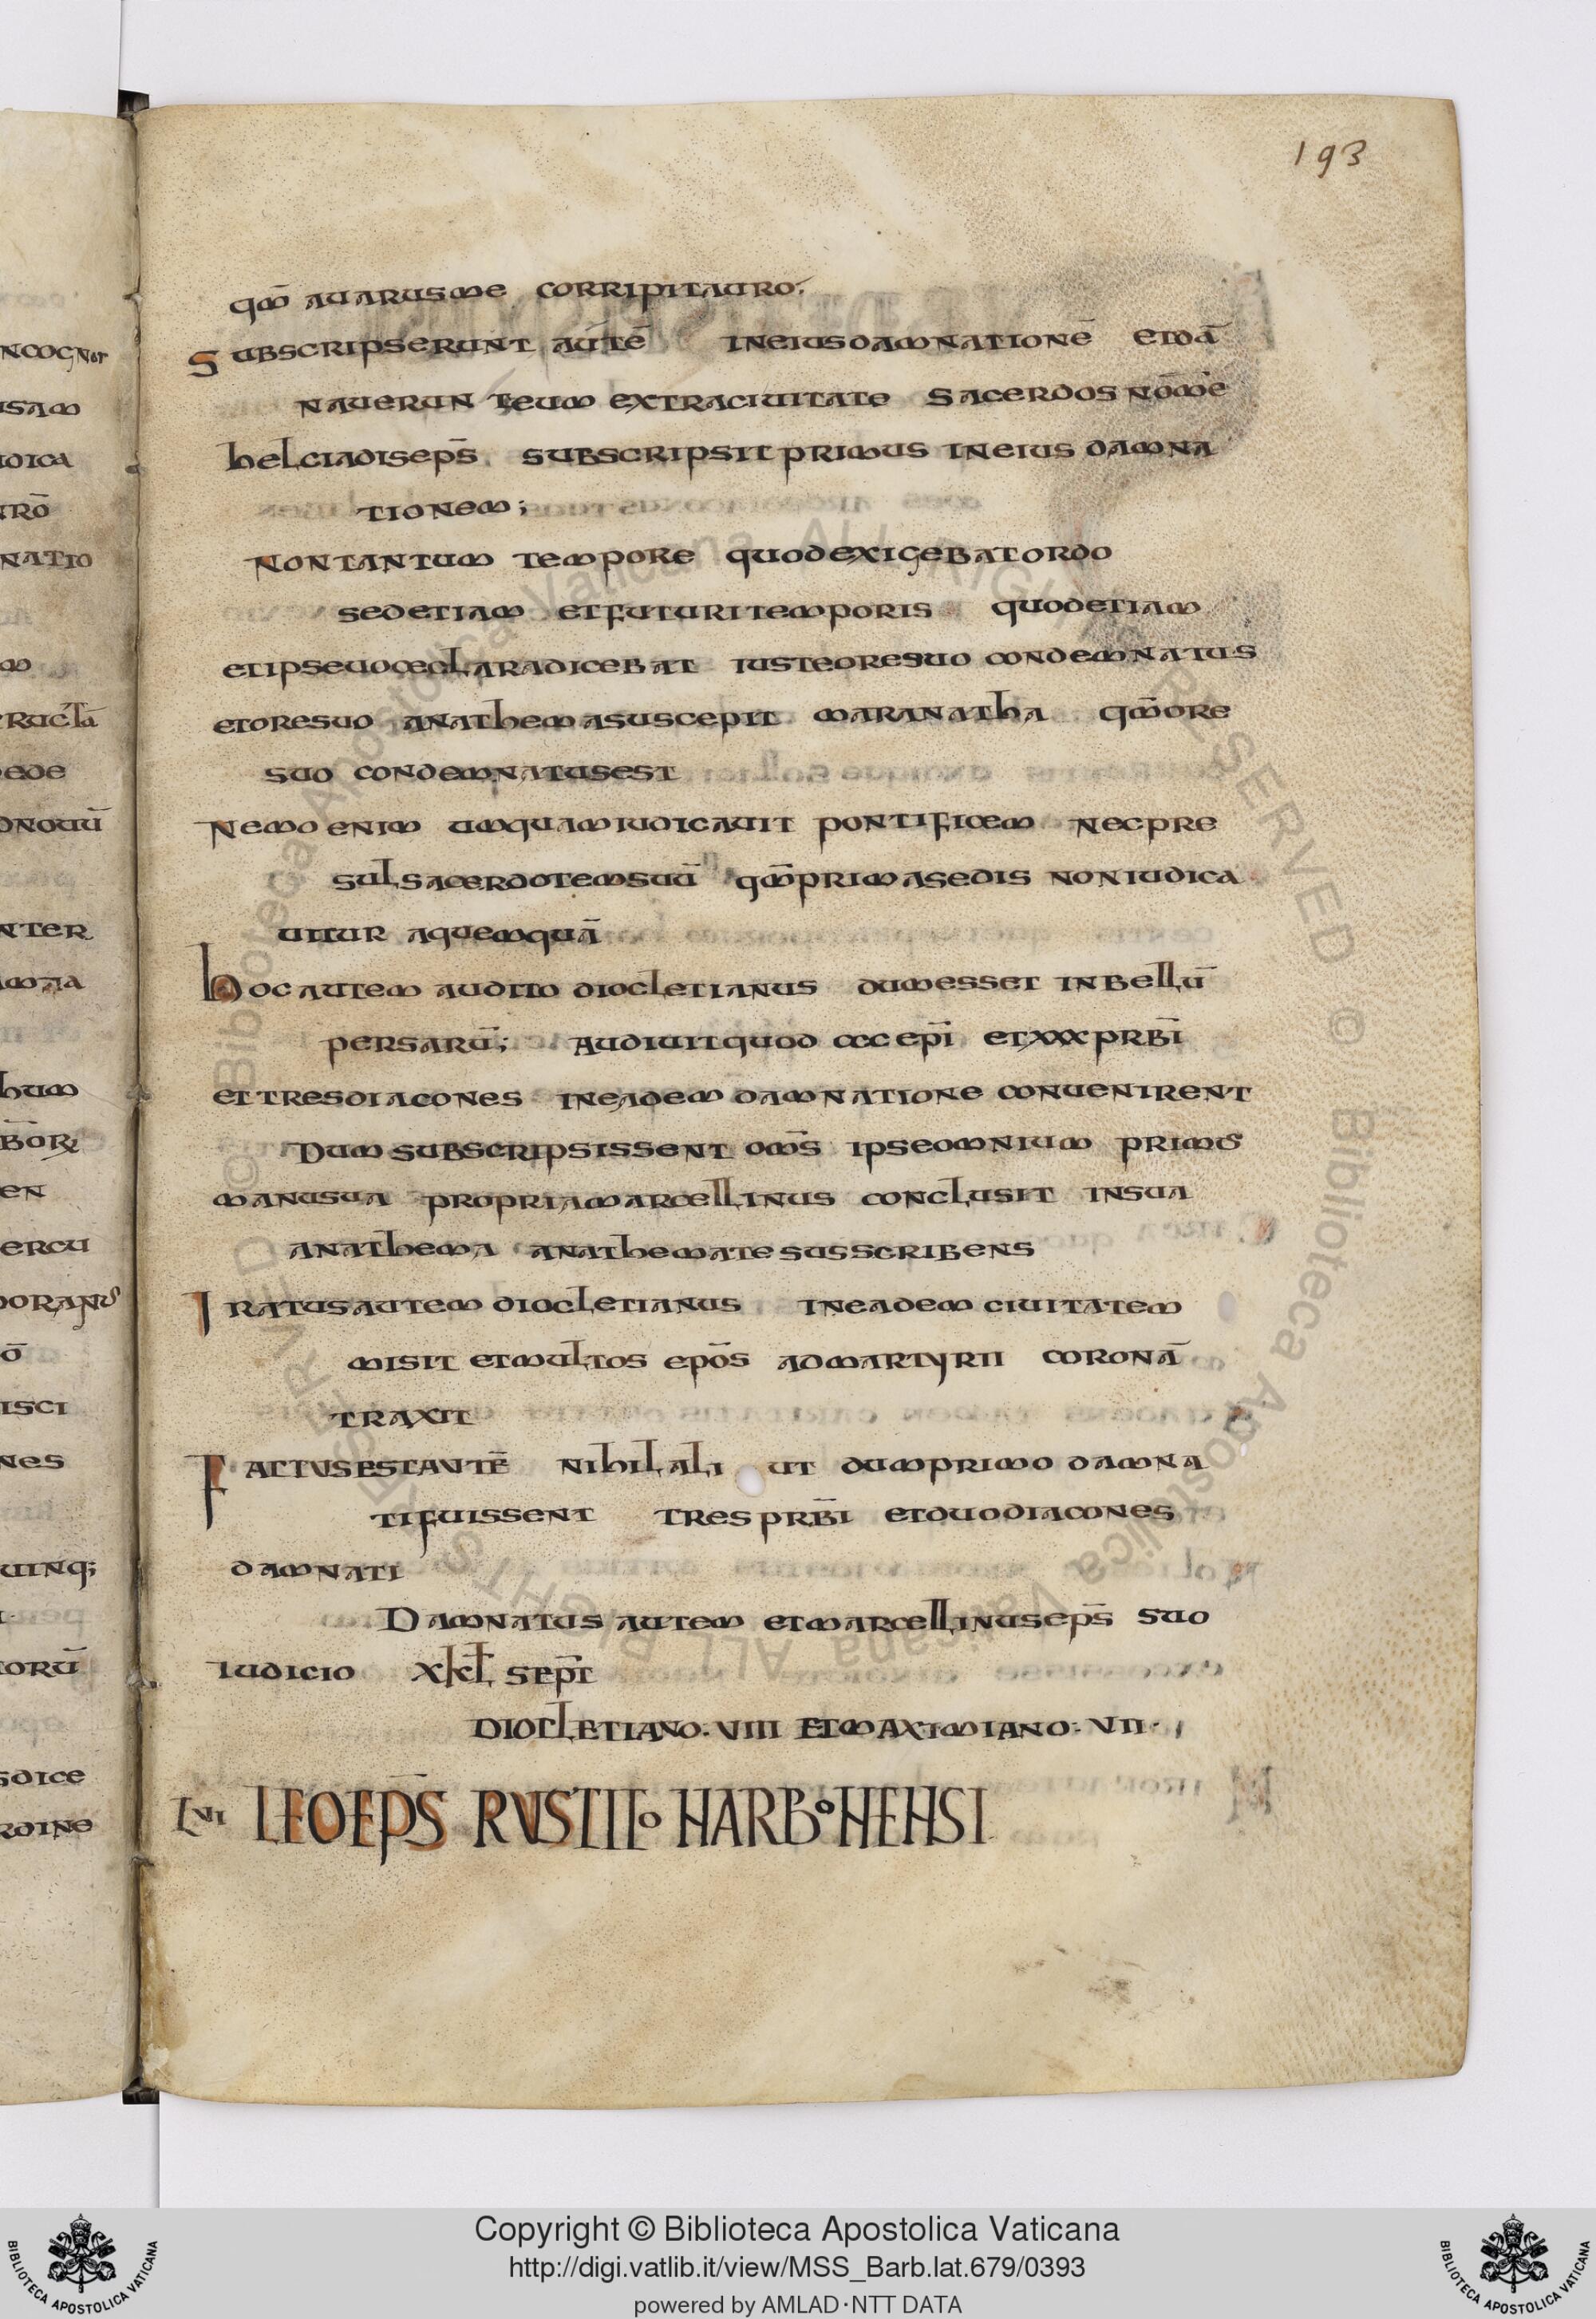 193
qm̄ auarusme corripitauro.
Subscripserunt autē ineiusdamnationē etdā
nauerunt eum extraciuitate sacerdos nōme
helciadisep̄s subscripsit primus ineius damna
tionem;
Nontantum tempore quodexigebatordo
sedetiam etfuturitemporis quodetiam
etipseuoceclaradicebat iusteoresuo condemnatus
etoresuo anathemasuscepit maranatha qm̄ore
suo condemnatusest
Nemo enim umquamiudicauit pontificem necpre
sulsacerdotemsuū qm̄primasedis noniudica
uitur aquemquā
hoc autem audito diocletianus dumesset inbellū
persarū; Audiuitquod ccc ep̄i etxxxprb̄i
ettresdiacones ineadem damnatione conuenirent
Dum subscripsissent om̄s ipseomnium primus
manusua propriamarcellinus conclusit insua
anathema anathematesusscribens
Iratusautem diocletianus ineadem ciuitatem
misit etmultos epōs admartyrii coronā
traxit
Factusestautē nihilali ut dumprimo damna
tifuissent tres prb̄i etduodiacones
damnati
Damnatus autem etmarcellinusep̄s suo
iudicio xkl̄ sep̄t
diocletiano. VIII etmaximiano. VII.
Lvi LEOEP̄S RVSTICo NARBoNENSI
ncognor
usam
dica
rō
natio
m
ructā
ede
onouū
nter
mna
hum
b̄or
en
ercu
doranus
ō
isci
nes
uinq;
torū
sdice
rdine
Copyright © Biblioteca Apostolica Vaticana
http://digi.vatlib.it/view/MSS_Barb.lat.679/0393
powered by AMLAD·NTT DATA
BIBLIOTECA APOSTOLICA VATICANA
BIBLIOTECA APOSTOLICA VATICANA
© Biblioteca Apostolica Vaticana ALL RIGHTS RESERVED © Biblioteca Apostolica Vaticana ALL RIGHTS RESERVED